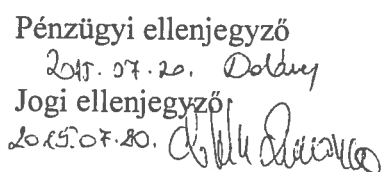 Pénzügyi ellenjegyző
2015. 07. 20.
Jogi ellenjegyző
2015.07.20.